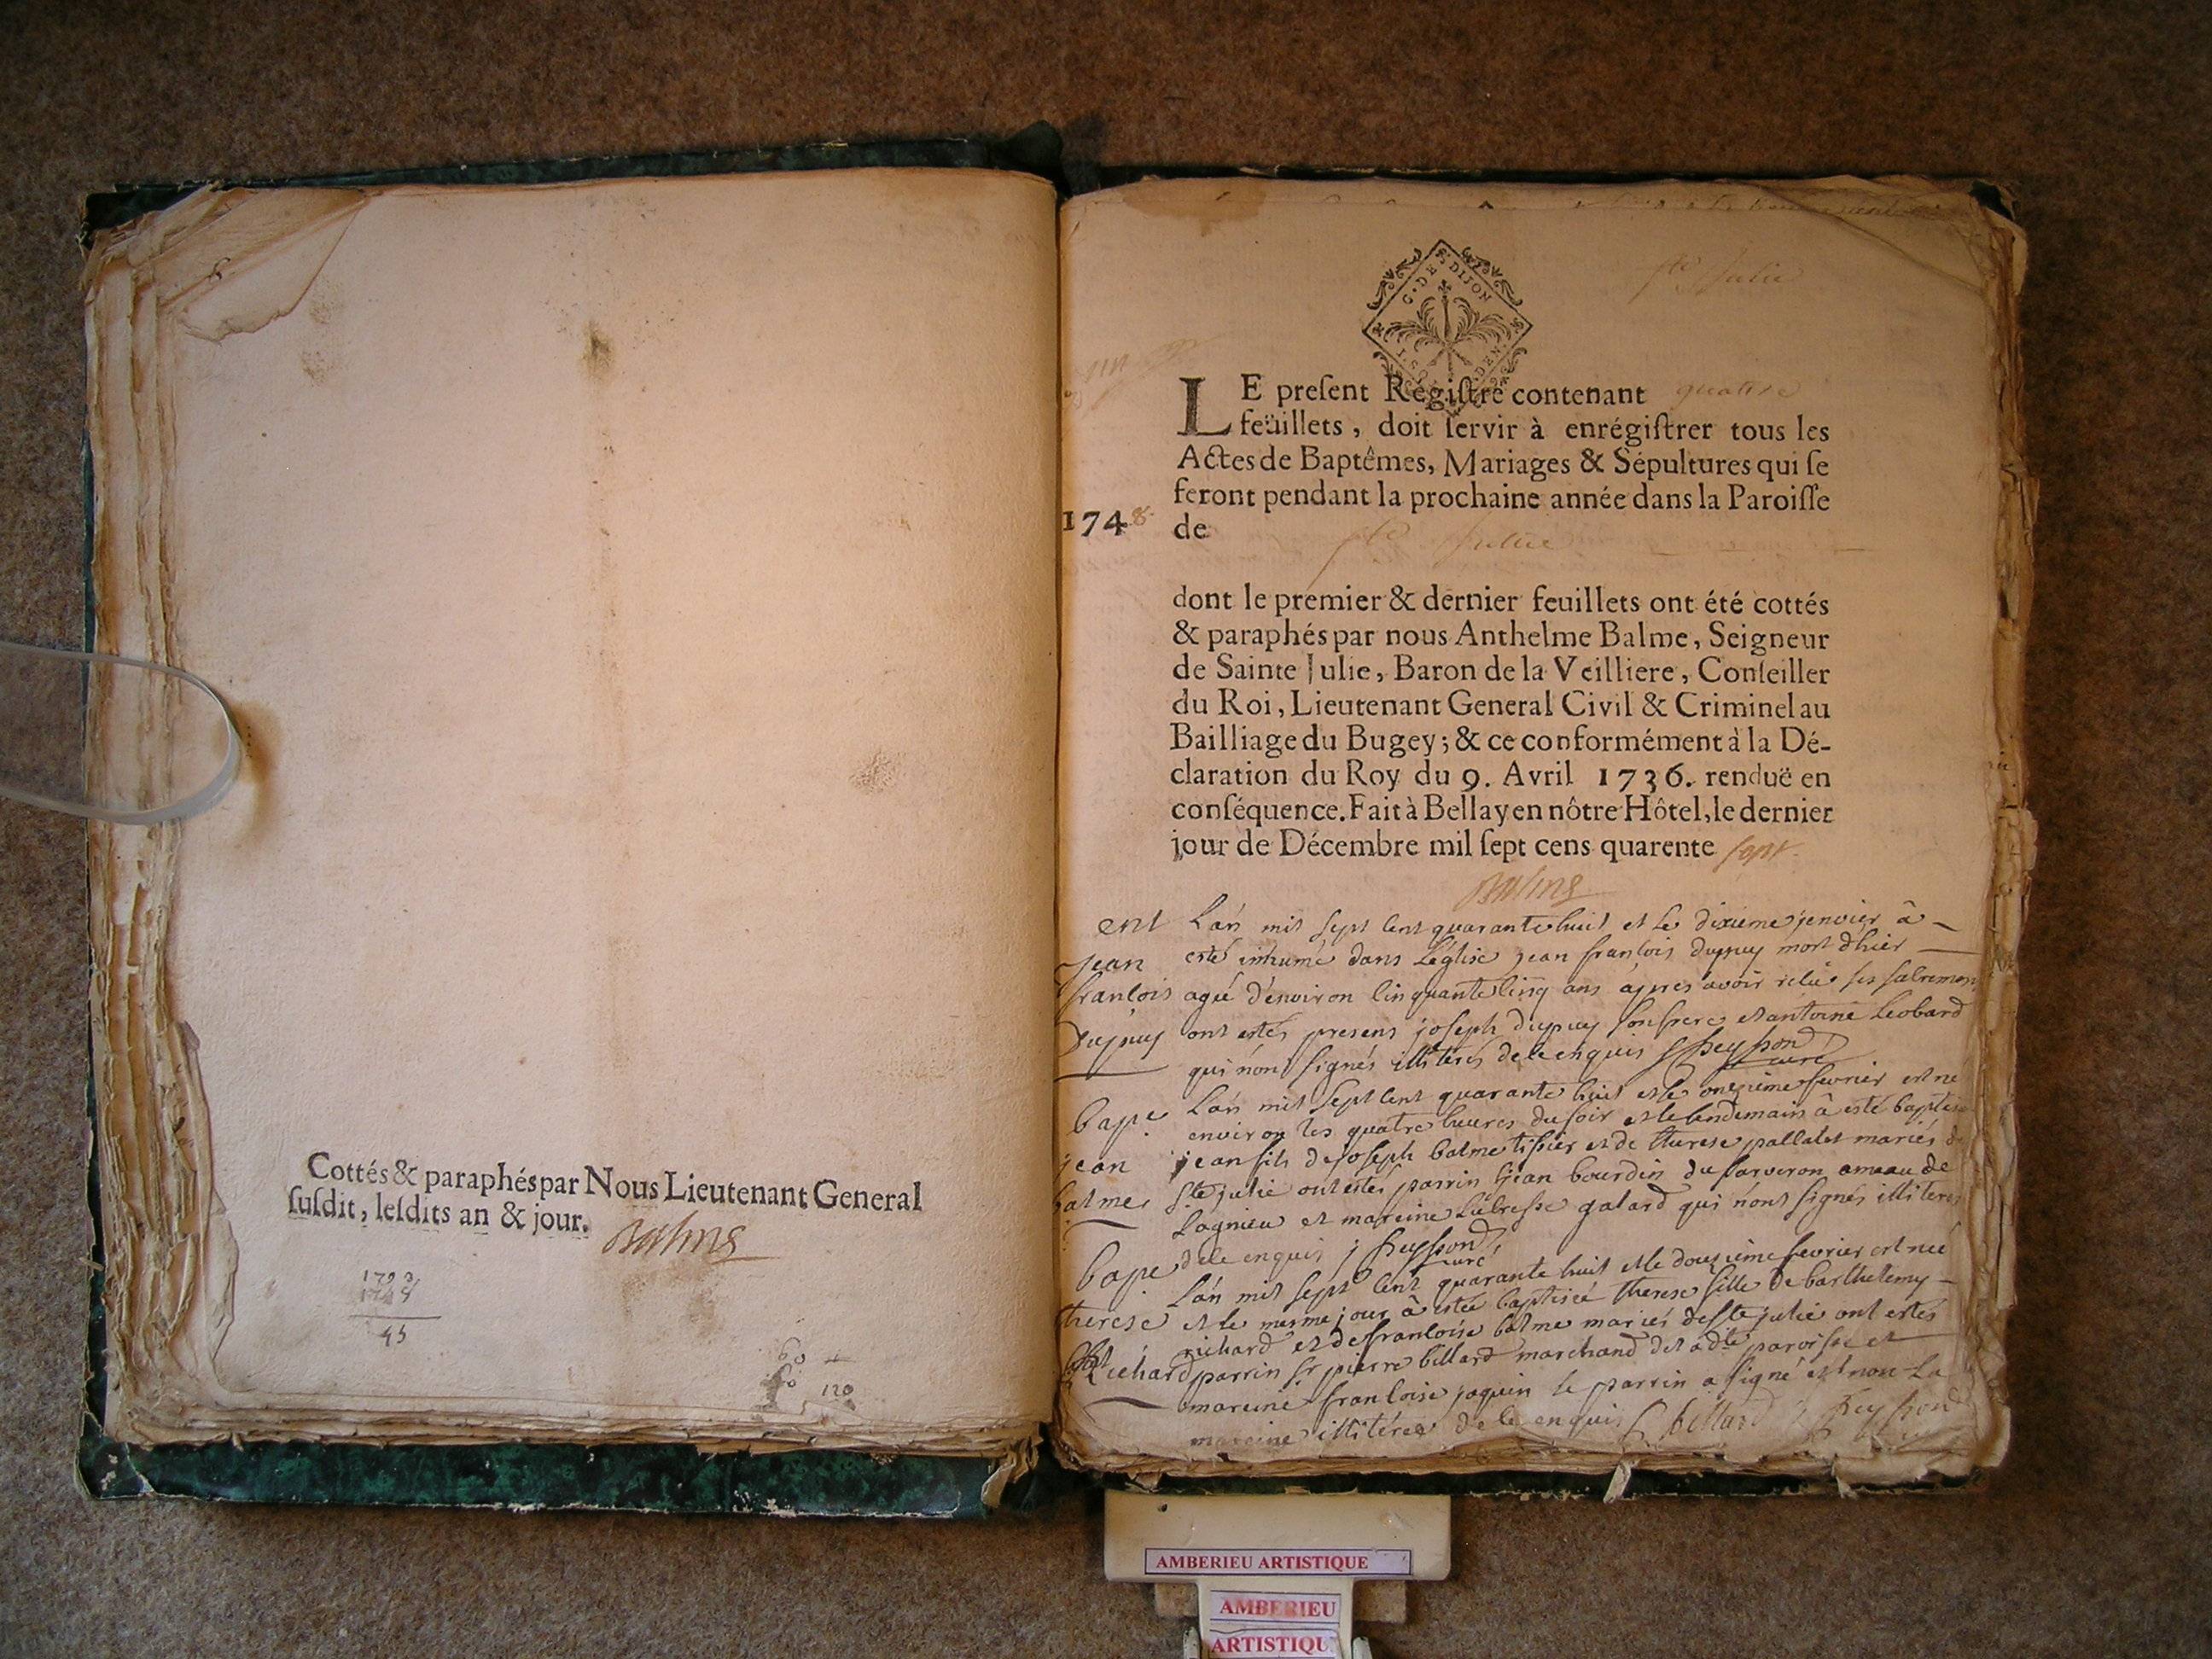 Cottés & paraphés par Nous Lieutenant General
ſuſdit, leſdits an & jour.
Balme
1793
1748
45
60
60
120
Ste Julie
G. DE DIJON
LE preſent Régiſtre contenant quatre
feüillets, doit ſervir à enrégiſtrer tous les
Actes de Baptêmes, Mariages & Sépultures qui ſe
feront pendant la prochaine année dans la Paroiſſe
1748
de Ste Julie
dont le premier & dernier feuillets ont été cottés
& paraphés par nous Anthelme Balme, Seigneur
de Sainte Julie, Baron de la Veilliere, Conſeiller
du Roi, Lieutenant General Civil & Criminel au
Bailliage du Bugey; & ce conformément à la Dé-
claration du Roy du 9. Avril 1736. renduë en
conſéquence. Fait à Bellay en nôtre Hôtel, le dernier
jour de Décembre mil ſept cens quarente ſept.
Balme
ent L'an mil sept cent quarante huit et le dixieme jenvier à
jean esté inhumé dans L'eglise jean francois dupuy mort d'hier
francois agé d'environ cinquante cinq ans apres avoir recu ses sacremen
Dupuy ont estés presens joseph dupuy son frere et antoine Leobard
qui n'ont signés illiterés de ce enquis Heysson curé
bape L'an mil sept cent quarante huit et le onzieme fevrier est né
environ les quatre heures du soir et le lendemain à esté baptisé
jean jean fils de joseph balme tisier et de therese pallatet mariés de
balme Ste julie ont estés parrin jean bourdin du ameau de
Lagnieu et mareine Lucresse galard qui n'ont signés illiteres
de ce enquis Heysson curé
bape L'an mil sept cent quarante huit et le douzieme fevrier est née
therese et le mesme jour à estée baptisée therese fille de barthelemy
Richard richard et de francoise balme mariés de Ste julie ont estés
parrin sr pierre billard marchand de ladte paroisse et
mareine francoise jaquin le parrin a signé et non la
mareine illiterée de ce enquis billard Heysson
AMBERIEU ARTISTIQUE
AMBERIEU
ARTISTIQU